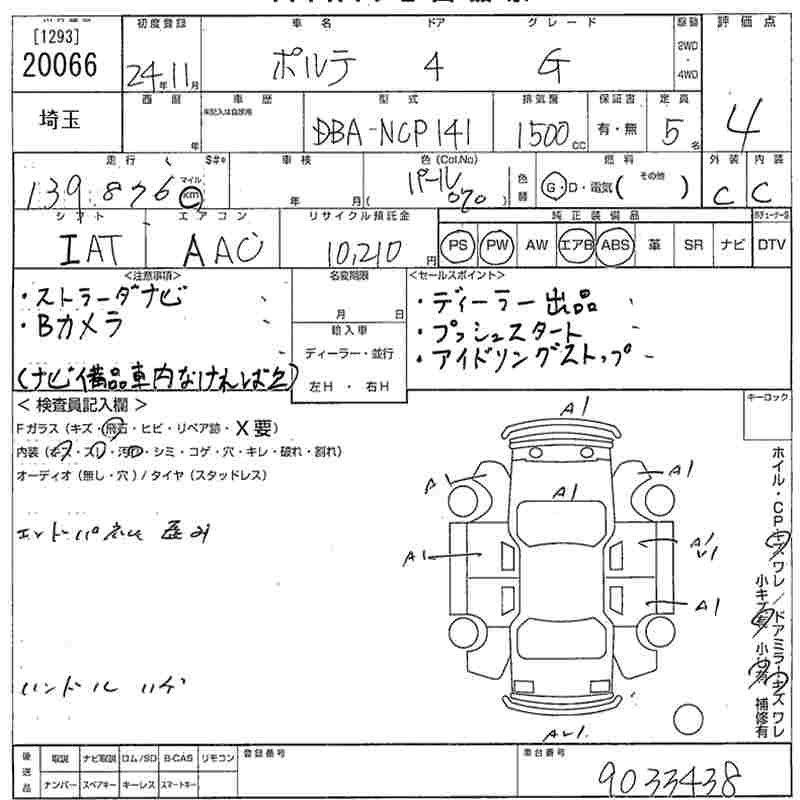 [1293] 初度登録 車名 ドア グレード 駆動 評価点
20066 24年11月 ポルテ 4 G 2WD・4WD 4
埼玉 西暦 年 車歴 未記入は自家用 型式 DBA-NCP141 排気量 1500CC 保証書 有・無 定員 5名
走行 139,876 マイル km S#* 車検 年 月( ) 色(Col.No) パール 070 色替 燃料 G・D・電気( その他 ) 外装 C 内装 C
シフト IAT エアコン AAC リサイクル預託金 10,210円 純正装備品 PS PW AW エアB ABS 革 SR ナビ DTV
<注意事項> 名変期限 月 日 <セールスポイント>
・ストラーダナビ
・Bカメラ
(ナビ備品車内なければ欠)
輸入車
ディーラー・並行
左H・右H
・ディーラー出品
・プッシュスタート
・アイドリングストップ
<検査員記入欄> キーロック
Fガラス(キズ・飛石・ヒビ・リペア跡・X要)
内装(キズ・スレ・汚れ・シミ・コゲ・穴・キレ・破れ・割れ)
オーディオ(無し・穴)/タイヤ(スタッドレス)
エンドパネル 歪み
ハンドル ハゲ
A1
A1
A1
A1
A1
A1
A1
ホイル・CP キズ ワレ / ドアミラー キズ ワレ
小キズ有 小凹有 補修有
後送品 取説 ナビ取説 ロム/SD B-CAS リモコン 登録番号 車台番号
ナンバー スペアキー キーレス スマートキー 9033438